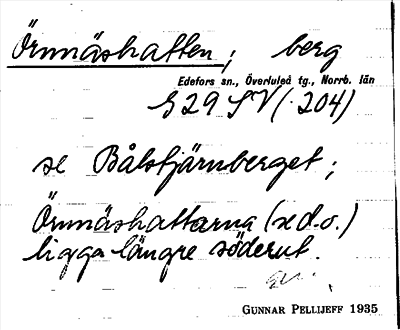 Örnnäshatten; berg
Edefors sn., Överluleå tg., Norrb. län
G 29 SV (. 204)
se Bålstjärnberget;
Örnnäshattarna (se d.o.)
ligga längre söderut.
GUNNAR PELLIJEFF 1935